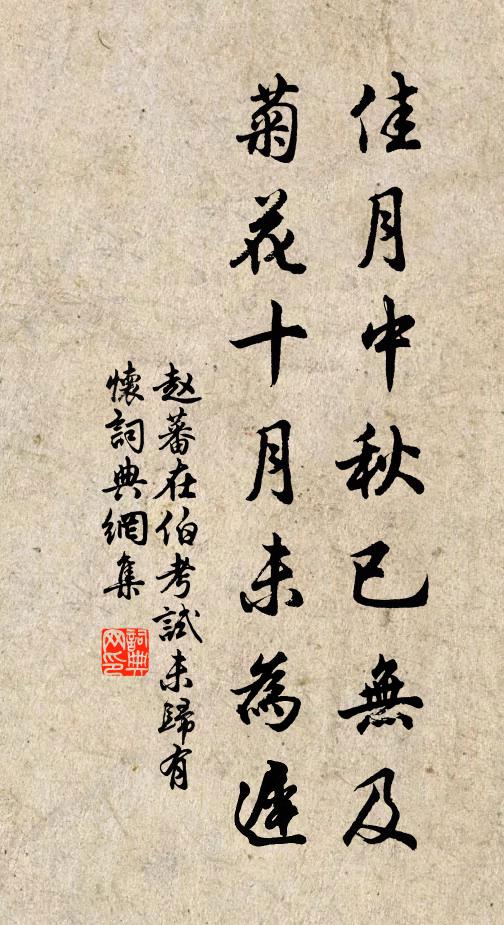 佳月中秋已無及
菊花十月未為遲
赵蕃在伯考試未歸有
懷詞典網集
詞典
网印